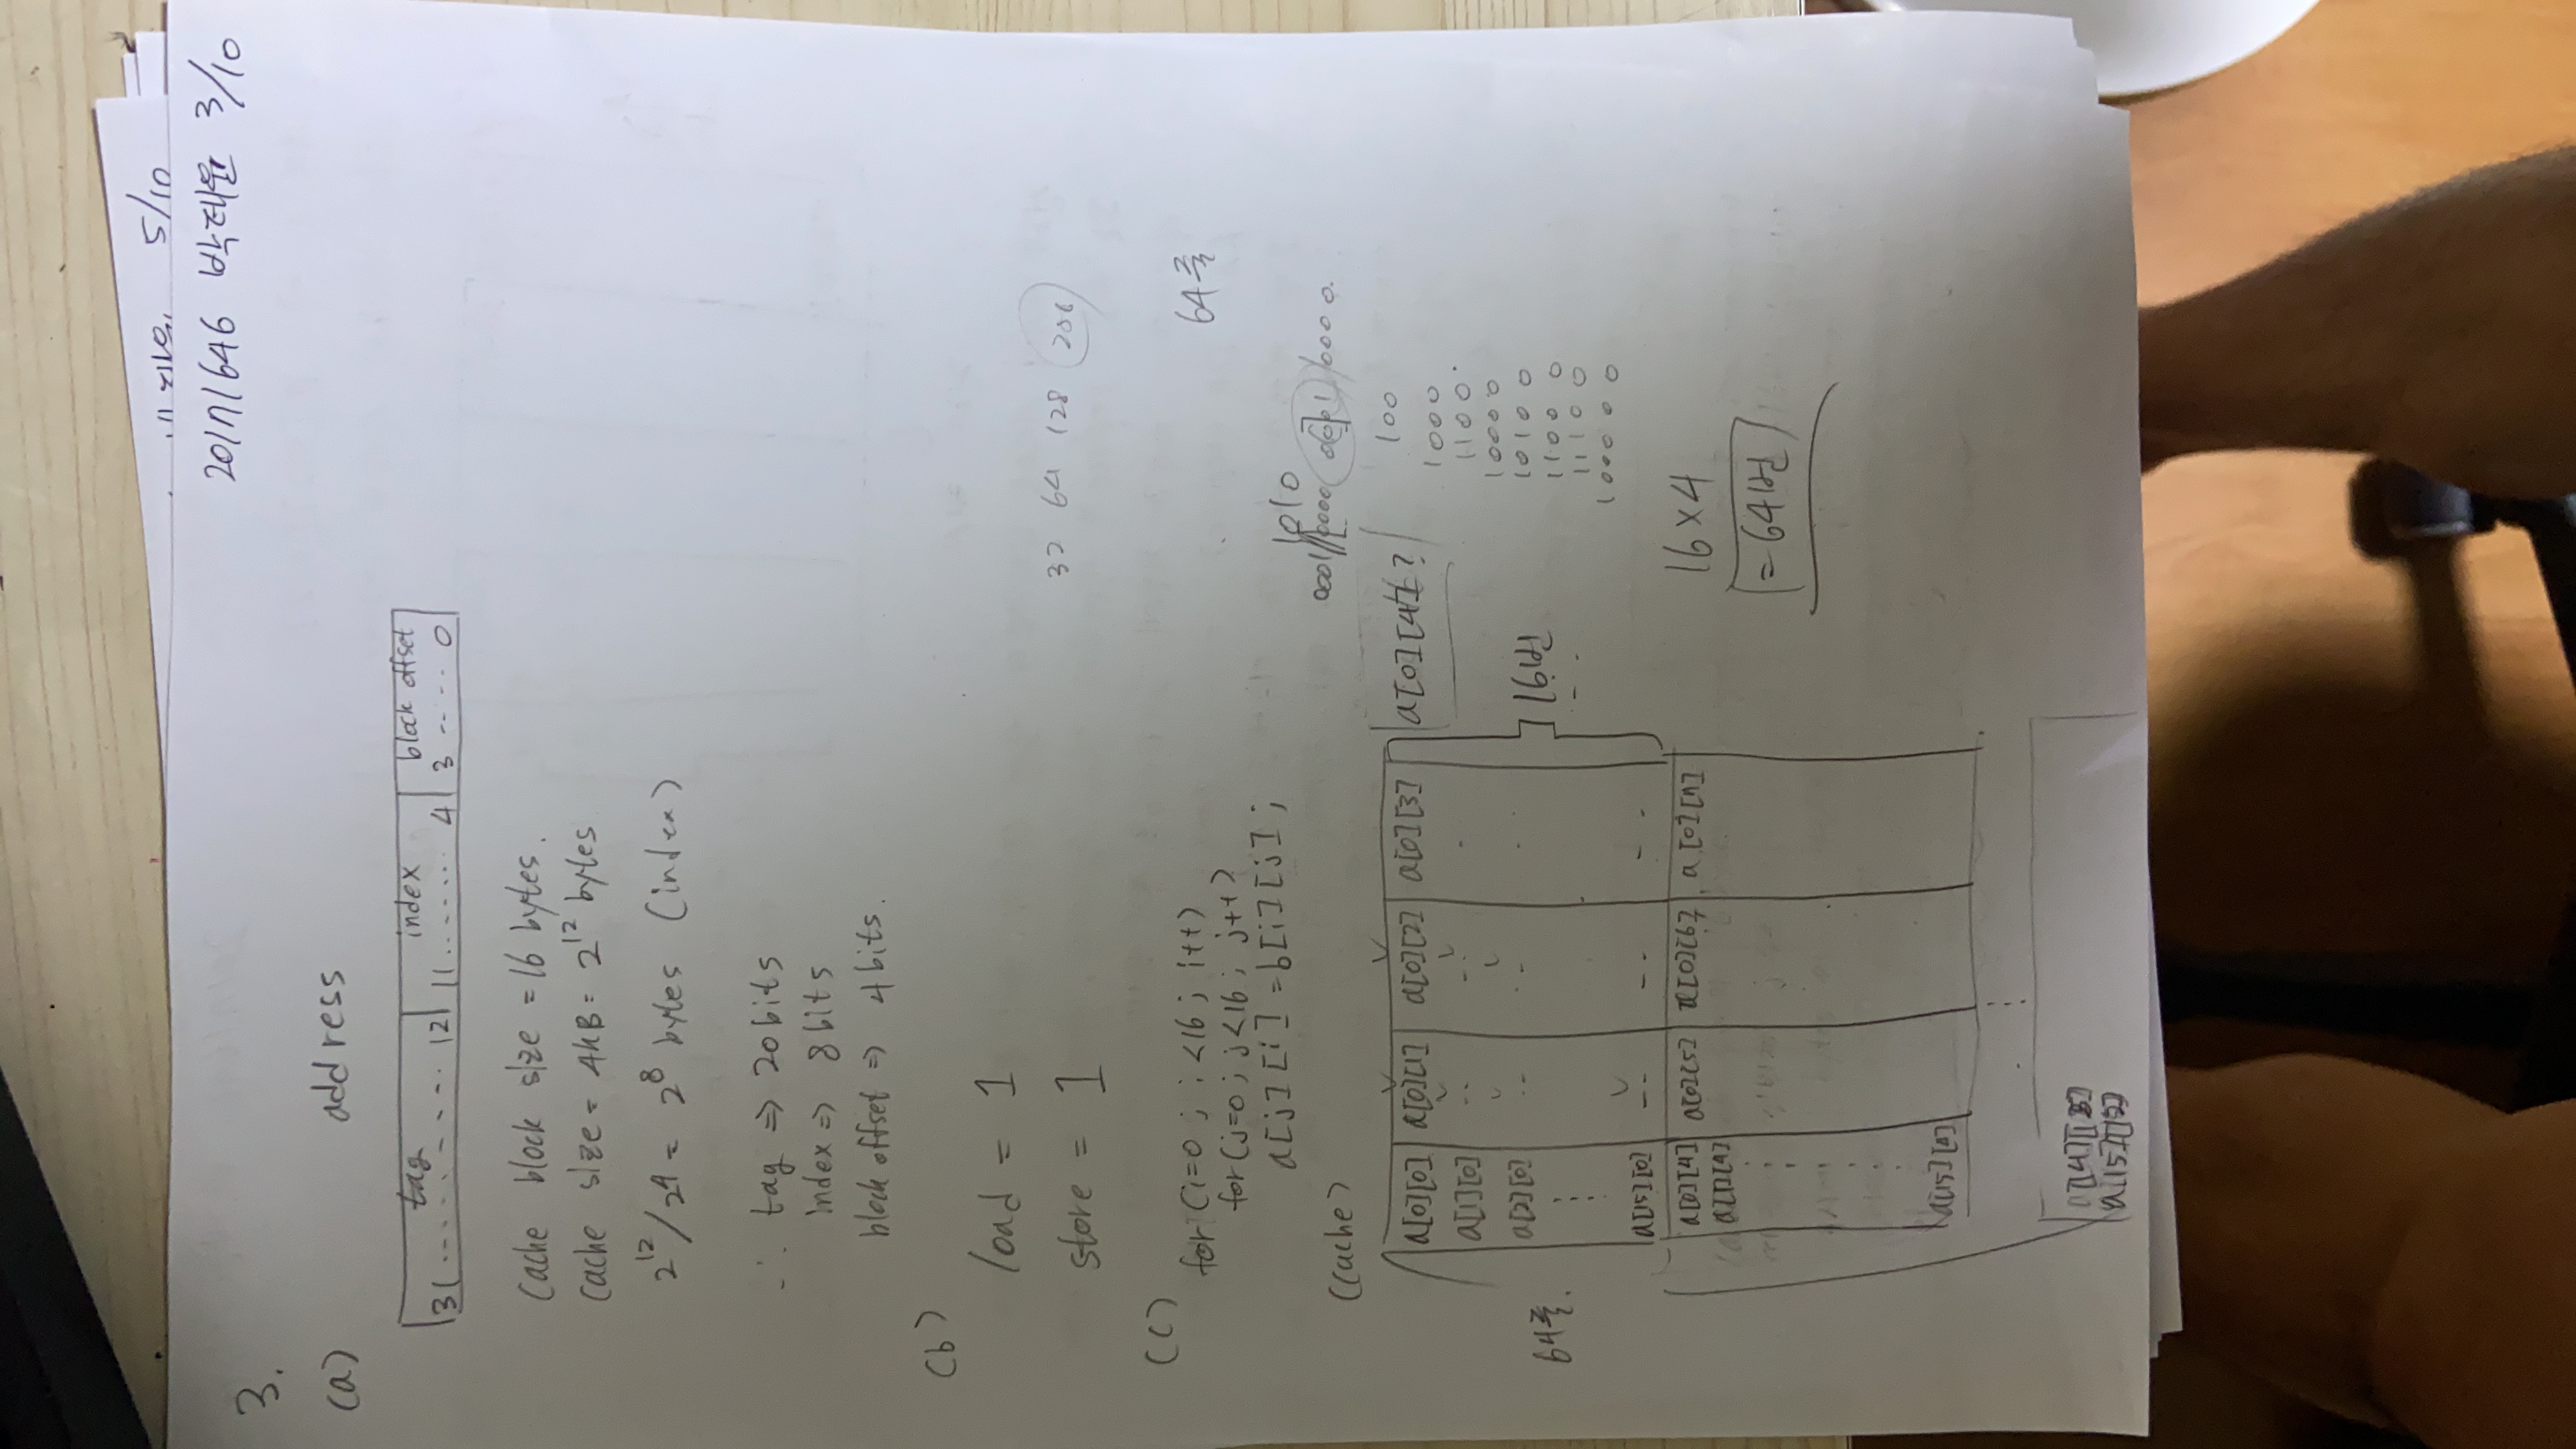 5/10
20171646 박태윤 3/10
3.
(a) address
tag index block offset
31 ---------- 12 11 ........ 4 3 ----- 0
Cache block size = 16 bytes.
Cache size = 4kB = 2^12 bytes
2^12/2^4 = 2^8 bytes (index)
∴ tag ⇒ 20bits
index ⇒ 8bits
block offset ⇒ 4bits.
(b)
load = 1
store = 1
32 64 128 256
(c)
for (i=0 ; i<16 ; i++)
for (j=0 ; j<16 ; j++)
a[j][i] = b[i][j] ;
64줄
1010
0001//[0000 0001 /0000.
(Cache)
a[0][0] a[0][1] a[0][2] a[0][3]
a[0][4]는?
a[1][0]
a[2][0]
a[15][0]
64줄.
16번
100
1000
1100
10000
10100
11000
11100
100000
a[0][4] a[0][5] a[0][6] a[0][7]
a[1][4]
a[15][4]
16×4
= 64번